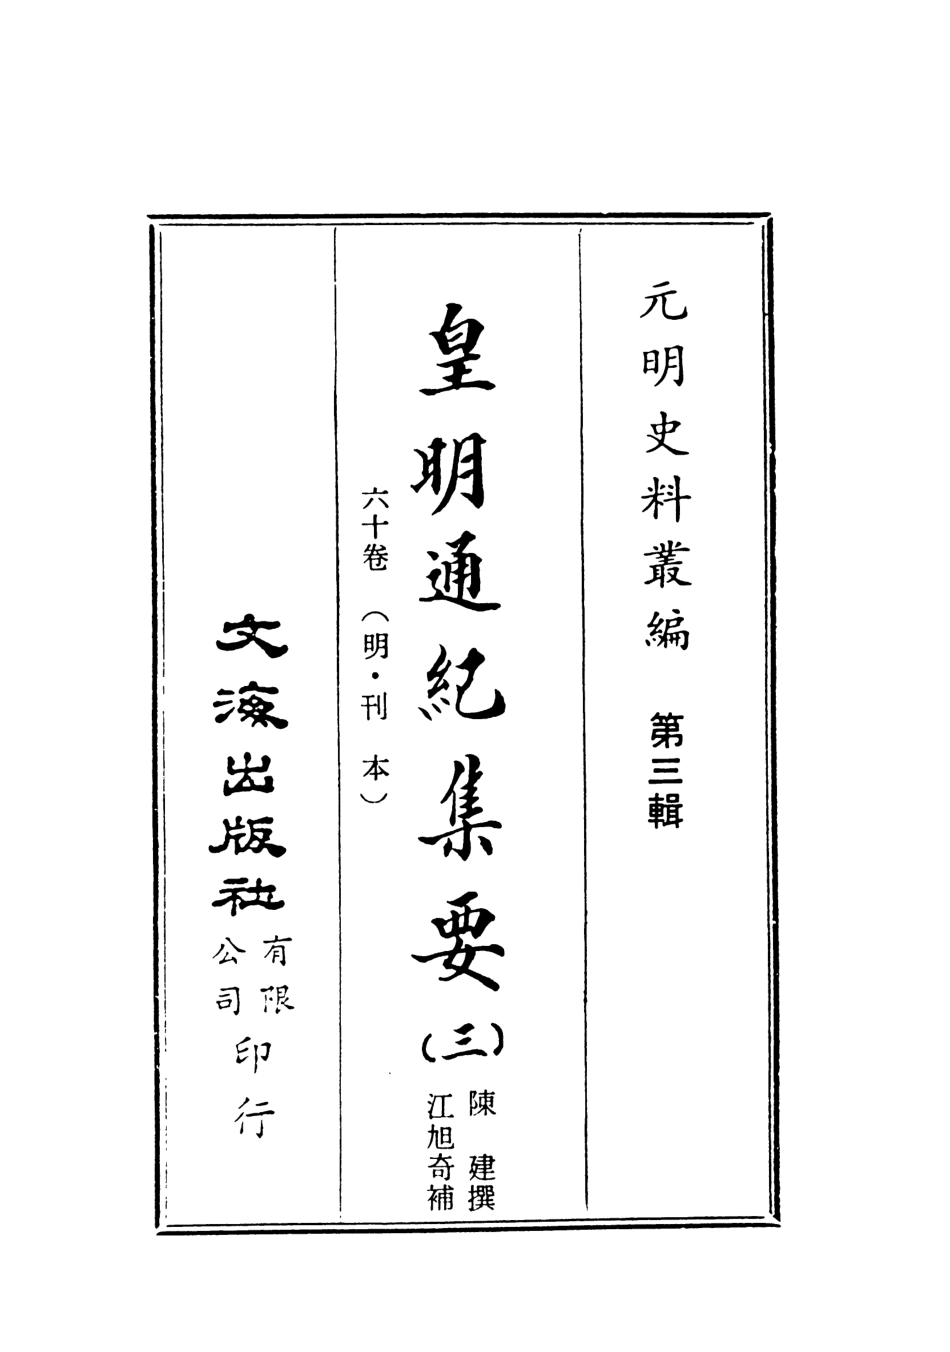 元明史料叢編　第三輯
皇明通紀集要(三)
陳　建撰
江旭奇補
六十卷　（明・刊　本）
文海出版社
有限
公司
印行